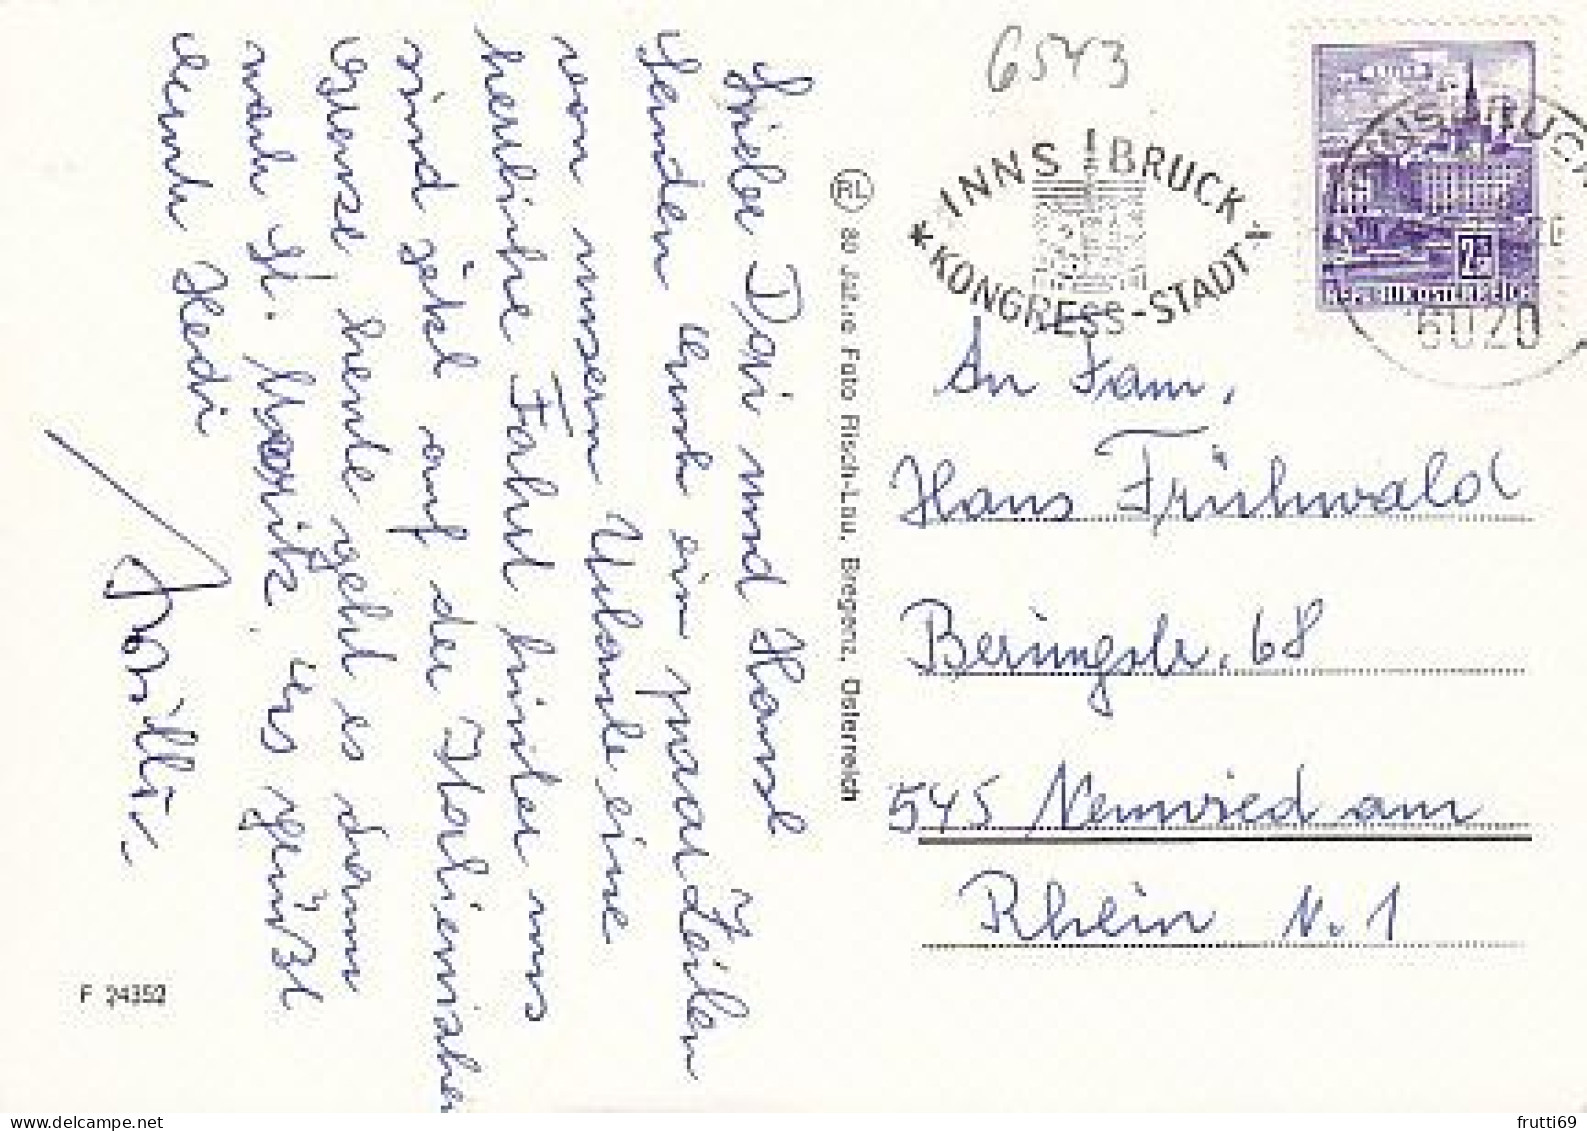 6543
INNSBRUCK
KONGRESS-STADT
INNSBRUCK
6020
An Fam.
Hans Frühwald
Beringstr. 68
545 Neuwied am
Rhein N. 1
RL 80 Jahre Foto Risch-Lau, Bregenz, Österreich
Lieber Dori und Hansl
Senden Euch ein paar Zeilen
von unsern Urlaub eine
herrliche Fahrt hinter uns
sind jetzt auf der Italienischen
Grenze, heute geht es dann
nach St. Moritz. Es grüßt
Euch Hedi
Willi
F 24352
www.delcampe.net
frutti69